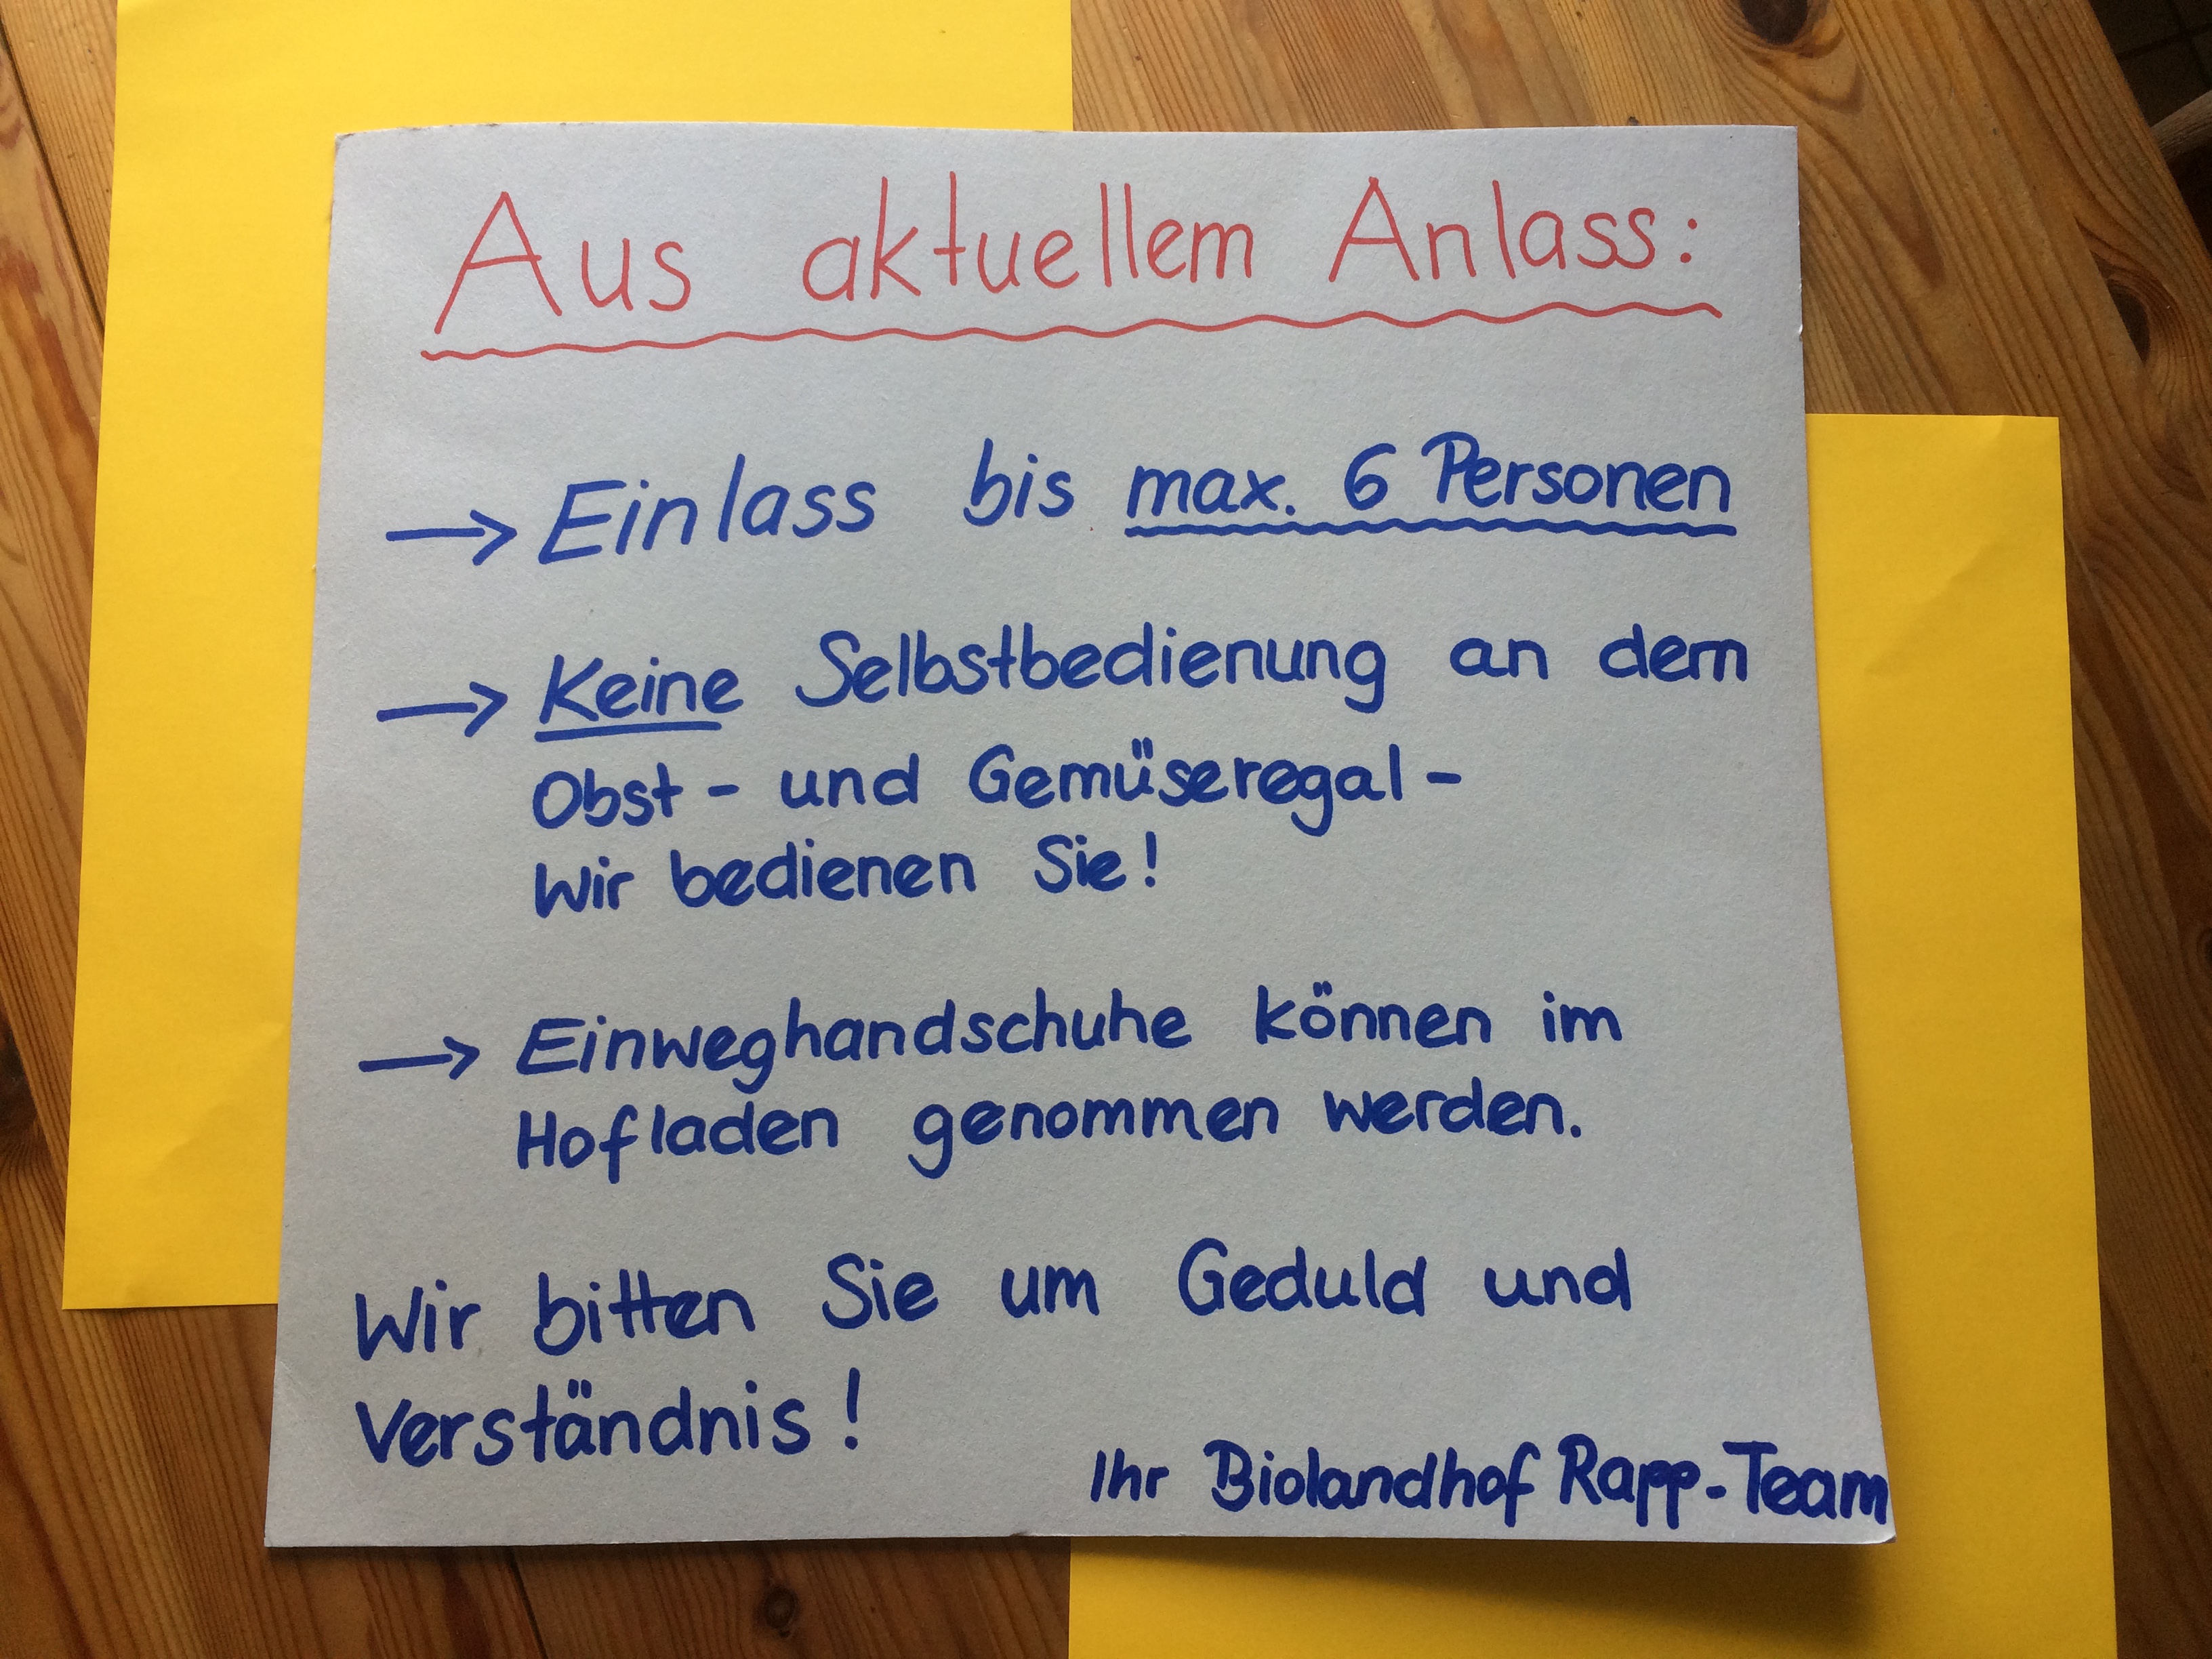 Aus aktuellem Anlass:
→ Einlass bis max. 6 Personen
→ Keine Selbstbedienung an dem
Obst- und Gemüseregal-
Wir bedienen Sie!
→ Einweghandschuhe können im
Hofladen genommen werden.
Wir bitten Sie um Geduld und
Verständnis!
Ihr Biolandhof Rapp-Team